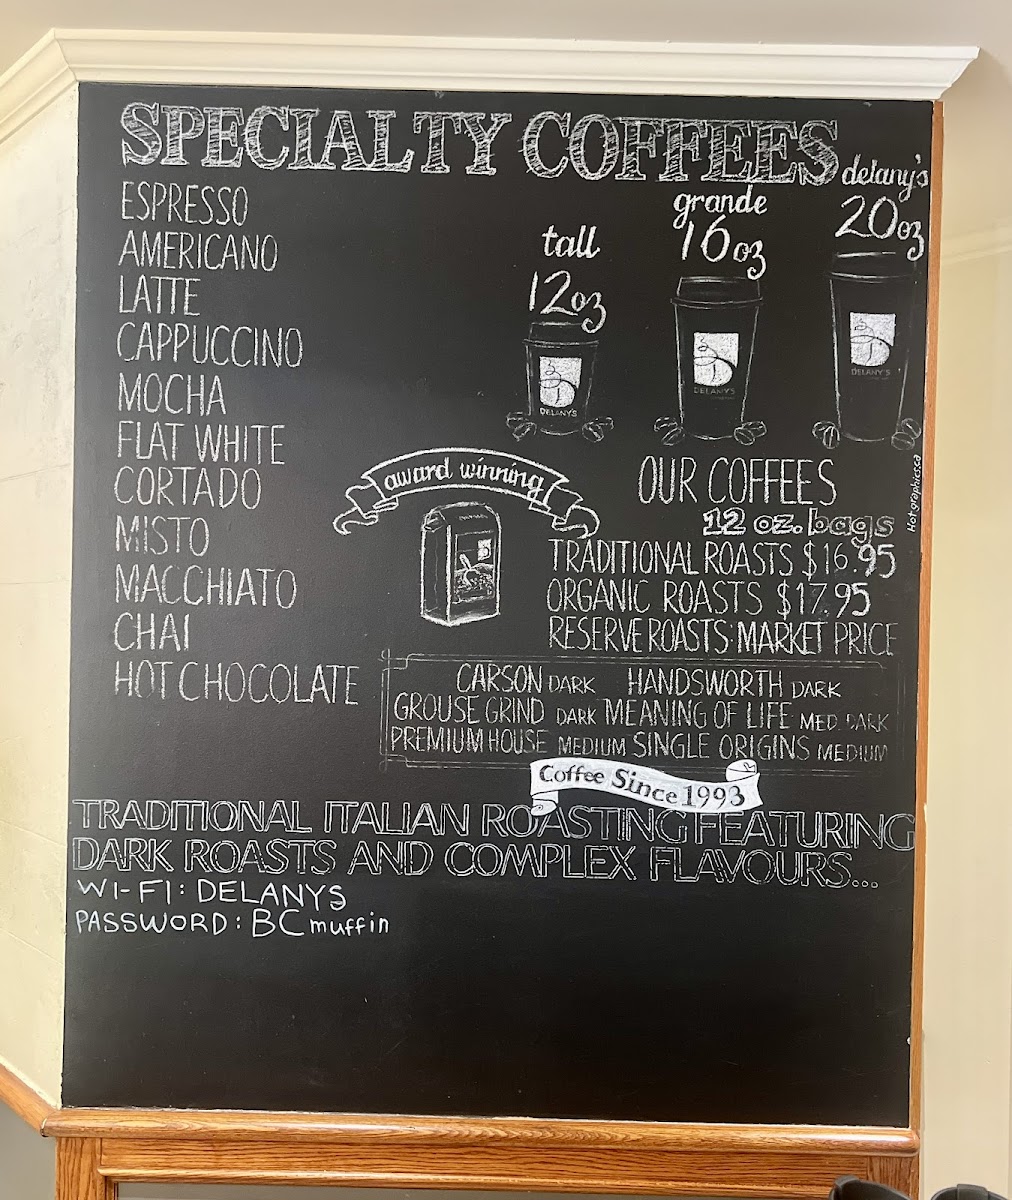 SPECIALTY COFFEES
ESPRESSO
AMERICANO
LATTE
CAPPUCCINO
MOCHA
FLAT WHITE
CORTADO
MISTO
MACCHIATO
CHAI
HOT CHOCOLATE
tall
12oz
grande
16oz
delany's
20oz
DELANY'S
DELANY'S
DELANY'S
award winning
OUR COFFEES
12 oz. bags
TRADITIONAL ROASTS $16.95
ORGANIC ROASTS $17.95
RESERVE ROASTS: MARKET PRICE
Hotgraphics.ca
CARSON DARK HANDSWORTH DARK
GROUSE GRIND DARK MEANING OF LIFE MED. DARK
PREMIUM HOUSE MEDIUM SINGLE ORIGINS MEDIUM
Coffee Since 1993
TRADITIONAL ITALIAN ROASTING FEATURING
DARK ROASTS AND COMPLEX FLAVOURS...
WI-FI: DELANYS
PASSWORD: BCmuffin